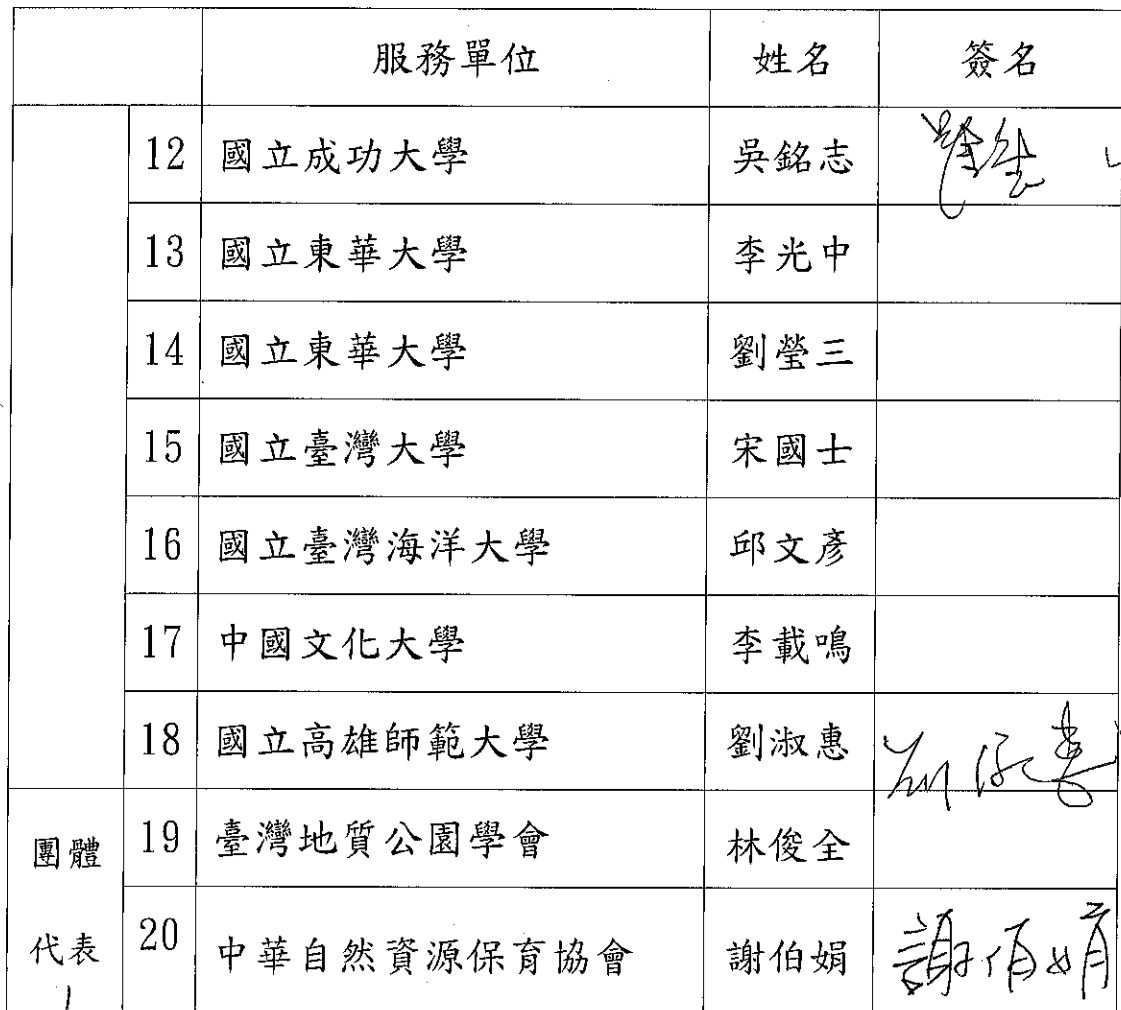 服務單位 姓名 簽名
12 國立成功大學 吳銘志
13 國立東華大學 李光中
14 國立東華大學 劉瑩三
15 國立臺灣大學 宋國士
16 國立臺灣海洋大學 邱文彥
17 中國文化大學 李載鳴
18 國立高雄師範大學 劉淑惠
團體
19 臺灣地質公園學會 林俊全
代表
20 中華自然資源保育協會 謝伯娟 謝伯娟